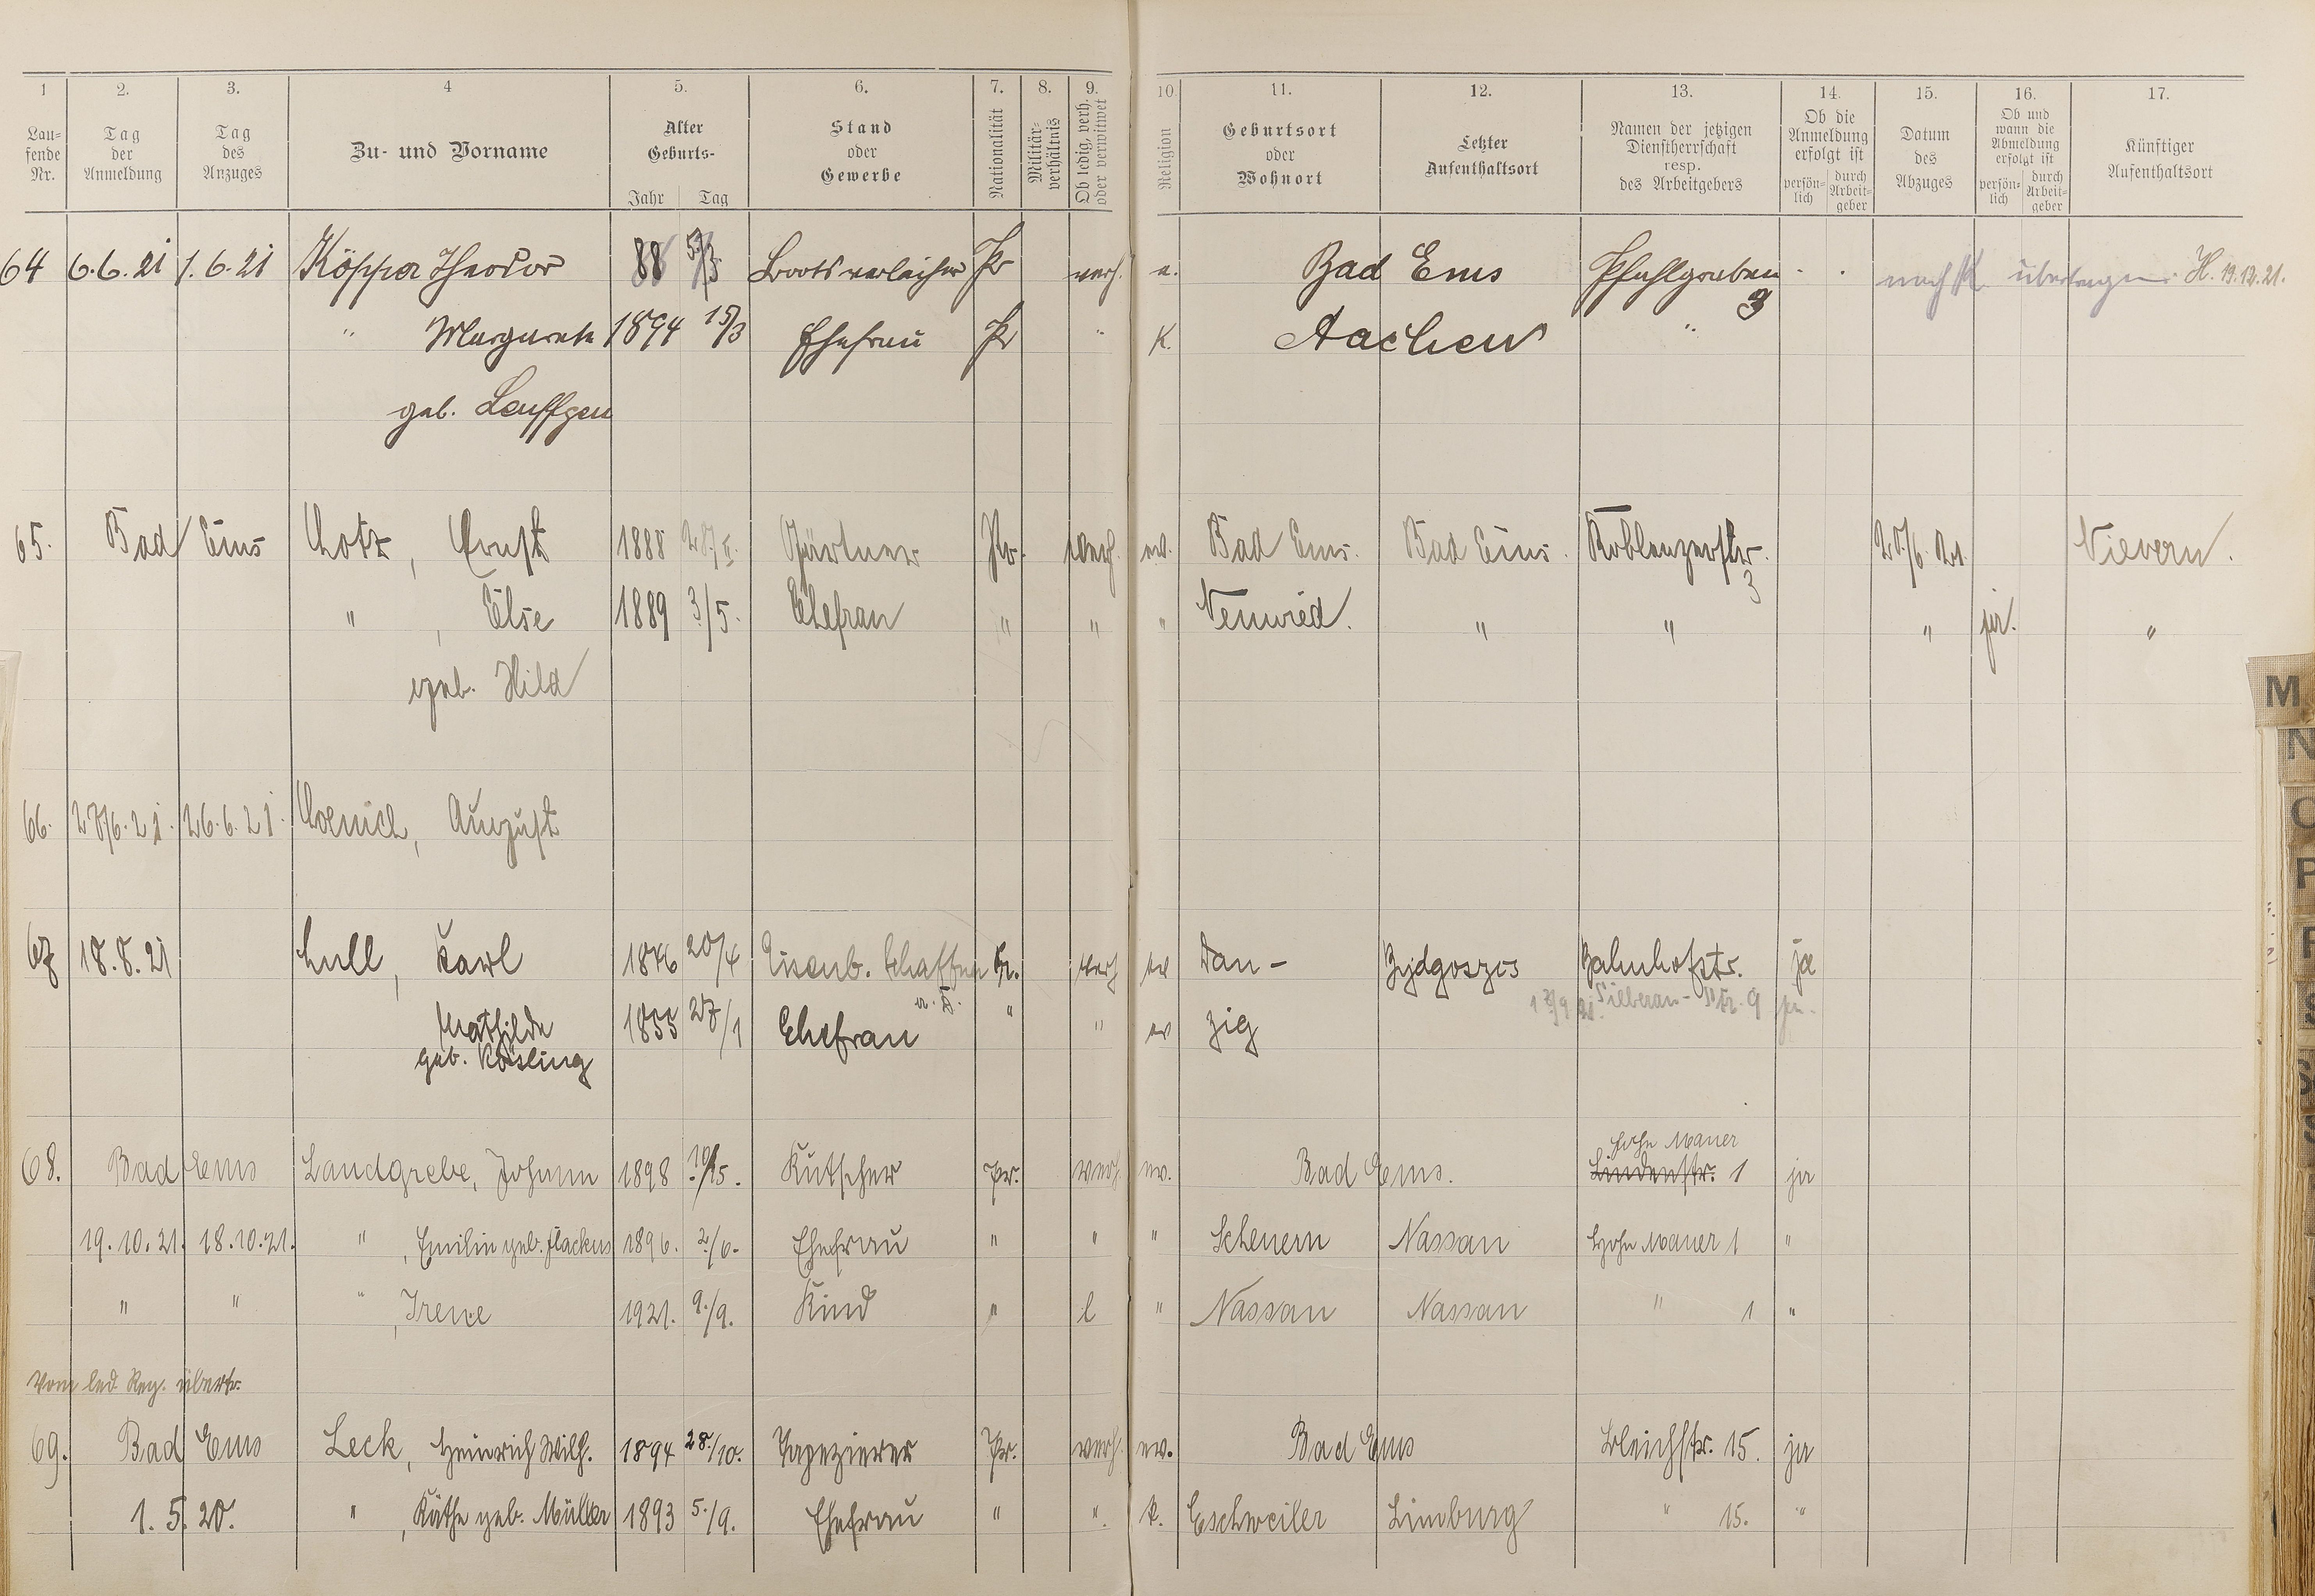 1 2. 3. 4 5. 6. 7. 8. 9. 10 11. 12. 13. 14. 15. 16. 17.
Lau-fende Nr. Tag der Anmeldung Tag des Anzuges Zu- und Vorname Alter Geburts- Jahr Tag Stand oder Gewerbe Nationalität Militär-verhältnis Ob ledig, verh. oder verwitwet Religion Geburtsort oder Wohnort Letzter Aufenthaltsort Namen der jetzigen Dienstherrschaft resp. des Arbeitgebers Ob die Anmeldung erfolgt ist persön-lich durch Arbeit-geber Datum des Abzuges Ob und wann die Abmeldung erfolgt ist persön-lich durch Arbeit-geber Künftiger Aufenthaltsort
64 6.6.21 1.6.21 Köpper Theodor 88 Bootsverleiher Pr verh. e. Bad Ems Pfahlgraben 3 nach K übertragen H. 19.12.21.
" Margarete 1894 15/3 Ehefrau Pr " K. Aachen "
geb. Lauffgen
65. Bad Ems Lotz, Ernst 1888 Gärtner Pr. verh. ev. Bad Ems. Bad Ems. Koblenzerstr. 3 Nievern.
" , Else 1889 3/5. Ehefrau " " " Neuwied. " " " "
geb. Hild
66. 27/6.21. 26.6.21. Loenich, August
67 18.8.21 Lull, Karl 1876 20/4 Eisenb. Schaffner a. D. Pr. verh ev Dan- Bydgoszcs Bahnhofstr. ja
Silberau-Str. 9
Mathilde 1855 27/1 Ehefrau " " ev zig
geb. Kössling
68. Bad Ems Landgrebe, Johann 1898 Kutscher Pr. verh. ev. Bad Ems. Hohe Mauer Lindenstr. 1 ja
19.10.21. 18.10.21. " , Emilie geb. Flackus 1896. 2/6. Ehefrau " " " Scheuern Nassau Hohe Mauer 1 "
" " " , Irene 1921. 9./9. Kind " l " Nassau Nassau " 1 "
Vom led. Reg. übertr.
69. Bad Ems Leck, Heinrich Wilh. 1894 28./10. Tapezierer Pr. verh. ev. Bad Ems Bleichstr. 15. ja
1.5.20. " , Käthe geb. Müller 1893 5./9. Ehefrau " ". k. Eschweiler Limburg " 15. "
M
N
O
P
R
S